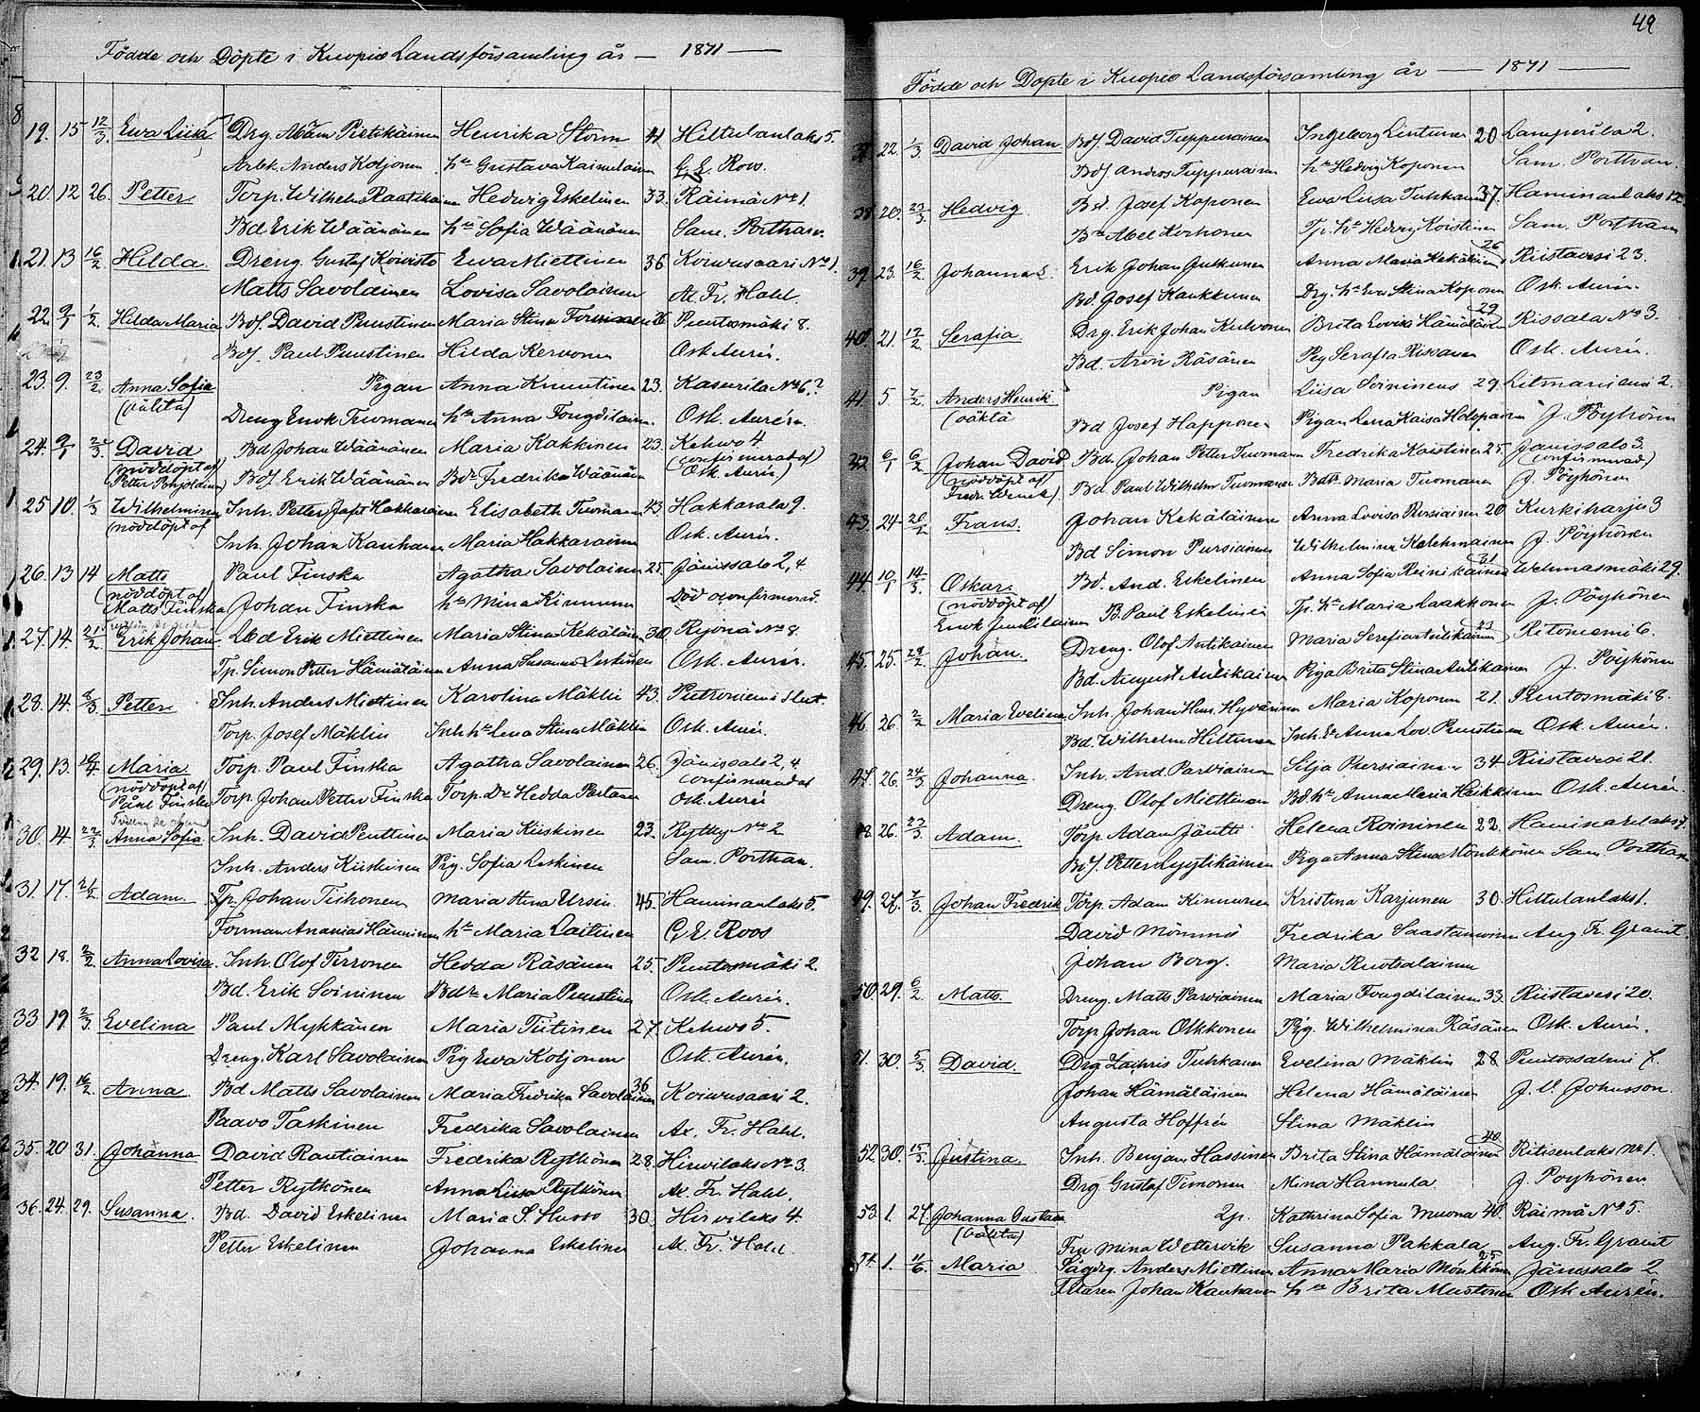 Födde och Döpte i Kuopio Landsförsamling år — 1871 —
19. 15 12/3. Ewa Liisa Drg. Adam Pietikäinen Henrika Storm 41 Hiltulanlaks 5.
Arbk. Anders Koljonen hu Gustava Kainulainen G. E. Roos.
20. 12 26. Petter Torp. Wilhelm Raatikainen Hedwig Eskelinen 33. Räimä No 1.
Bd Erik Wäänänen hu Sofia Wäänänen Sam. Porthan.
21. 13 16/2 Hilda. Dreng Gustaf Koivisto Ewa Miettinen 36 Koiwusaari No 1.
Matts Savolainen Lovisa Savolainen Ax. Fr. Hahl.
22. 9/1 1/2 Hilda Maria Bdf. David Puustinen Maria Stina 26 Puutosmäki 8.
Bdf. Paul Puustinen Hilda Kervonen Osk. Aurén.
23. 9. 23/2. Anna Sofia Pigan Anna Knuutinen 23. Kasurila No 6?
(oäkta) Dreng Enok Tuomanen hu Anna Fougdilainen Osk. Aurén.
24. 9/1 David Bd Johan Wäänänen Maria Kokkonen 23. Kehvo 4
(nöddöpt af Petter Pohjolainen) Bdf Erik Wäänänen Bdr Fredrika Wäänänen (confirmerad af Osk. Aurén)
25 10. 1/3 Wilhelmina Inh. Petter Hakkarainen Elisabeth Tuomanen 43. Hakkarala 9.
(nöddöpt af Inh. Johan Kauhanen Maria Hakkarainen Osk. Aurén.
26. 13 14 Matts Paul Finska Agatha Savolainen 25. Jänissalo 2, 4
(nöddöpt af Matts Finska Johan Finska hu Mina Kinnunen Död oconfirmerad.
27. 14. 21/2. Erik Johan Erik Miettinen Maria Stina Kekäläinen 30. Ryönä No 8.
Tp. Simon Petter Hämäläinen Anna Susanna Leskinen Osk. Aurén.
28. 14. 8/3. Petter Inh. Anders Miettinen Karolina Mäklin 43. Puutroniemi slut.
Torp. Josef Mäklin Inh. hu Lena Stina Mäklin Osk. Aurén.
29. 13. Maria Torp. Paul Finska Agatha Savolainen 26. Jänissalo 2, 4
(nöddöpt af Påhl Finska Torp. Johan Petter Finska Torp. Dr Hedda Partanen confirmerad af Osk. Aurén
30. 14. 22/3. Anna Sofia Inh. David Penttinen Maria Kiiskinen 23. Rytky No 2
Inh. Anders Kiiskinen Pig. Sofia Leskinen Sam. Porthan.
31. 17. 21/2. Adam Tp. Johan Tiihonen Maria Stina Ursin 45. Haminanlaks 5.
Forman Ananias Hänninen hu Maria Laitinen G. E. Roos
32 18. 2/2. Anna Lovisa. Inh. Olof Tirronen Hedda Räsänen 25. Puutosmäki 2.
Bd. Erik Soininen Bdr Maria Puustinen Osk. Aurén.
33 19 2/3. Evelina Paul Mykkänen Maria Tiitinen 27. Kehvo 5.
Dreng. Karl Savolainen Pig Ewa Koljonen Osk. Aurén.
34. 19. 16/2. Anna Bd Matts Savolainen Maria Fredrika Savolainen 36 Koiwusaari 2.
Paavo Taskinen Fredrika Savolainen Ax. Fr. Hahl.
35. 20 31. Johanna David Rautiainen Fredrika Rytkönen 28. Hirwilaks No 3.
Petter Rytkönen Anna Liisa Rytkönen Ax. Fr. Hahl.
36. 24. 29. Susanna. Bd. David Eskelinen Maria S. Husso 30. Hirvilaks 4.
Petter Eskelinen Johanna Eskelinen Ax. Fr. Hahl.
49
Födde och Döpte i Kuopio Landsförsamling år — 1871 —
37. 22. 1/3. David Johan Bdf. David Tuppurainen Ingeborg Lintunen 20 Lamperila 2.
Bdf Andros Tuppurainen hu Hedvig Koponen Sam. Porthan.
38. 20. 23/3 Hedvig Bd. Josef Koponen Ewa Liisa Tuhkanen 37. Haminanlaks 12
Abel Korhonen Tp. hu Hedvig Koistinen Sam. Porthan
39. 23. 16/2 Johanna S. Erik Johan Jutkunen Anna Maria Kekäläinen 26 Riistavesi 23.
Bd. Josef Kaukkunen Drg. hu Ewa Stina Koponen Osk. Aurén.
40. 21. 12/2 Serafia. Drg. Erik Johan Kulvonen Brita Lovisa Hämäläinen 29 Rissala No 3.
Bd. Aron Räsänen Pig Serafia Rissanen Osk. Aurén.
41. 5 7/2. Anders Henrik Pigan Liisa Soininens 29 Litmaniemi 2.
(oäkta Bd Josef Happonen Pigan Lena Kaisa Holopainen J. Pöyhönen
42 6/1 6/2 Johan David Bd. Johan Petter Tuomanen Fredrika Koistinen 25. Jänissalo 3
(nöddöpt af) Bd. Paul Wilhelm Tuomanen Maria Tuomanen (confirmerad) J. Pöyhönen
43. 24 20/2 Frans. Johan Kekäläinen Anna Lovisa Persiainen 20 Kurkiharju 3
Bd Simon Pursiainen Wilhelmina Kalehmainen J. Pöyhönen
44. 10/1 14/3. Oskar Bd. And. Eskelinen Anna Sofia Reinikainen 31 Wehmasmäki 29.
(nöddöpt af) B. Paul Eskelinen Tp. hu Maria Laakkonen J. Pöyhönen
45. 25. 28/2 Johan. Dreng. Olof Antikainen Maria Serafia Antikainen Ritoniemi 6.
Bd. August Antikainen Piga Brita Stina Antikainen J. Pöyhönen
46. 26. 2/2 Maria Evelina Inh. Johan Henr. Hyvärinen Maria Koponen 21. Puutosmäki 8.
Bd. Wilhelm Hiltunen Anna Lov. Puustinen Osk. Aurén.
47. 26. 24/3 Johanna. Inh. And. Parviainen Silja Persiainen 34 Riistavesi 21.
Dreng. Olof Miettinen Bd hu Anna Maria Heikkinen Osk. Aurén.
48. 26. 23/3. Adam. Torp. Adam Jäntti Helena Roininen 22. Haminanlaks
Bdf. Petter Lyytikäinen Piga Anna Stina Mönkkönen Sam. Porthan
49. 27. 7/3. Johan Fredrik Torp. Adam Kinnunen Kristina Karjunen 30. Hiltulanlaks 1.
David Mömmö Fredrika Saastamoinen Aug Fr. Granit.
Johan Borg. Maria Ruotsalainen
50. 29. 6/2 Matts. Dreng. Matts Parviainen Maria Fougdilainen 33. Riistavesi 20.
Torp Johan Okkonen Pig. Wilhelmina Räsänen Osk. Aurén.
51. 30. 5/3. David. Drg Zachris Tuhkanen Evelina Mäklin 28 Puutossalmi
Johan Hämäläinen Helena Hämäläinen J. V. Johnsson.
Augusta Hoffrén Stina Mäklin
52 30. 15/3. Justina. Inh. Benjam Hassinen Brita Stina Hämäläinen 40 Ritisenlaks No 1.
Drg Gustaf Timonen Mina Hannula J. Pöyhönen
53. 1. 27. Johanna Gustava 2p. Kathrina Sofia Muona 40. Räimä No 5.
(oäkta) Fru Mina Wettervik Susanna Pakkala Aug. Fr. Granit
54. 1. 11/6. Maria Anders Miettinen Anna Maria Mönkkönen 25 Jänissalo 2
Johan Kauhanen hu Brita Mustonen Osk Aurén.